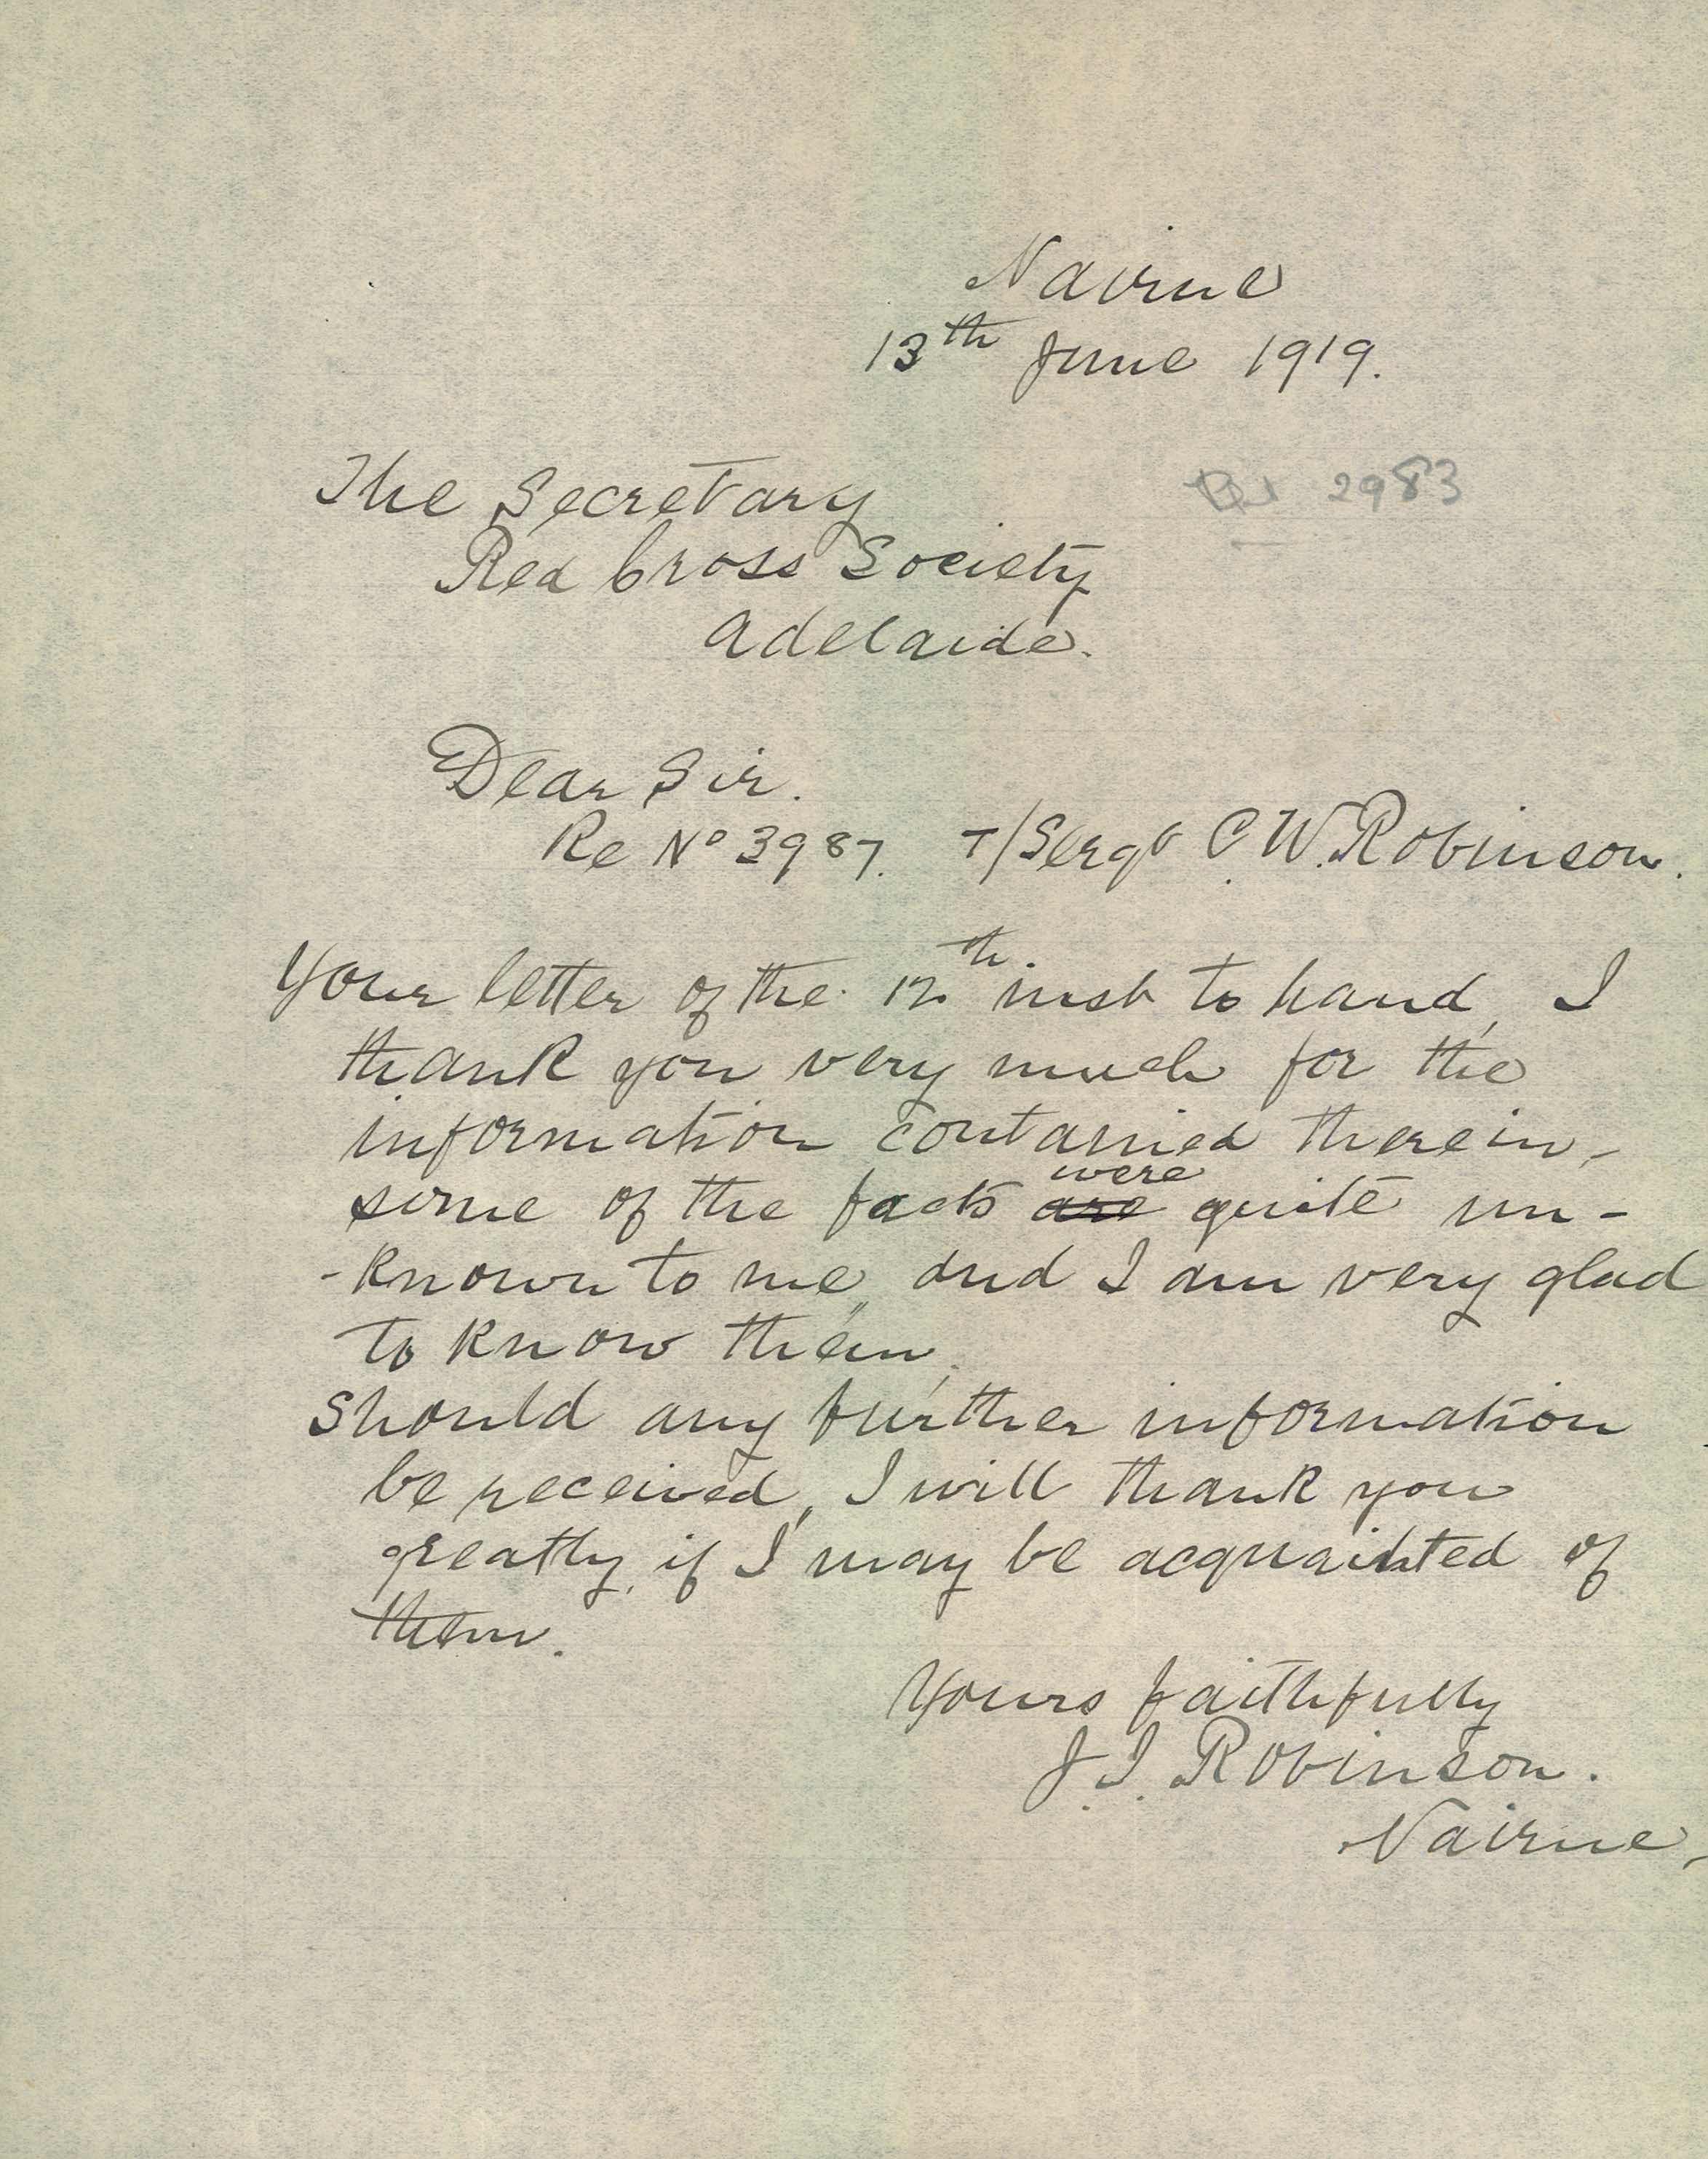 Nairne
13th June 1919.
2983
The Secretary
Red Cross Society
Adelaide.
Dear Sir.
Re No 3987. T/Sergt C.W. Robinson.
Your letter of the 12th. inst to hand, I
thank you very much for the
information contained therein,
some of the facts are were quite un-
-known to me, and I am very glad
to know them,
Should any further information
be received, I will thank you
greatly, if I may be acquainted of
them.
Yours faithfully
J.I. Robinson.
Nairne,